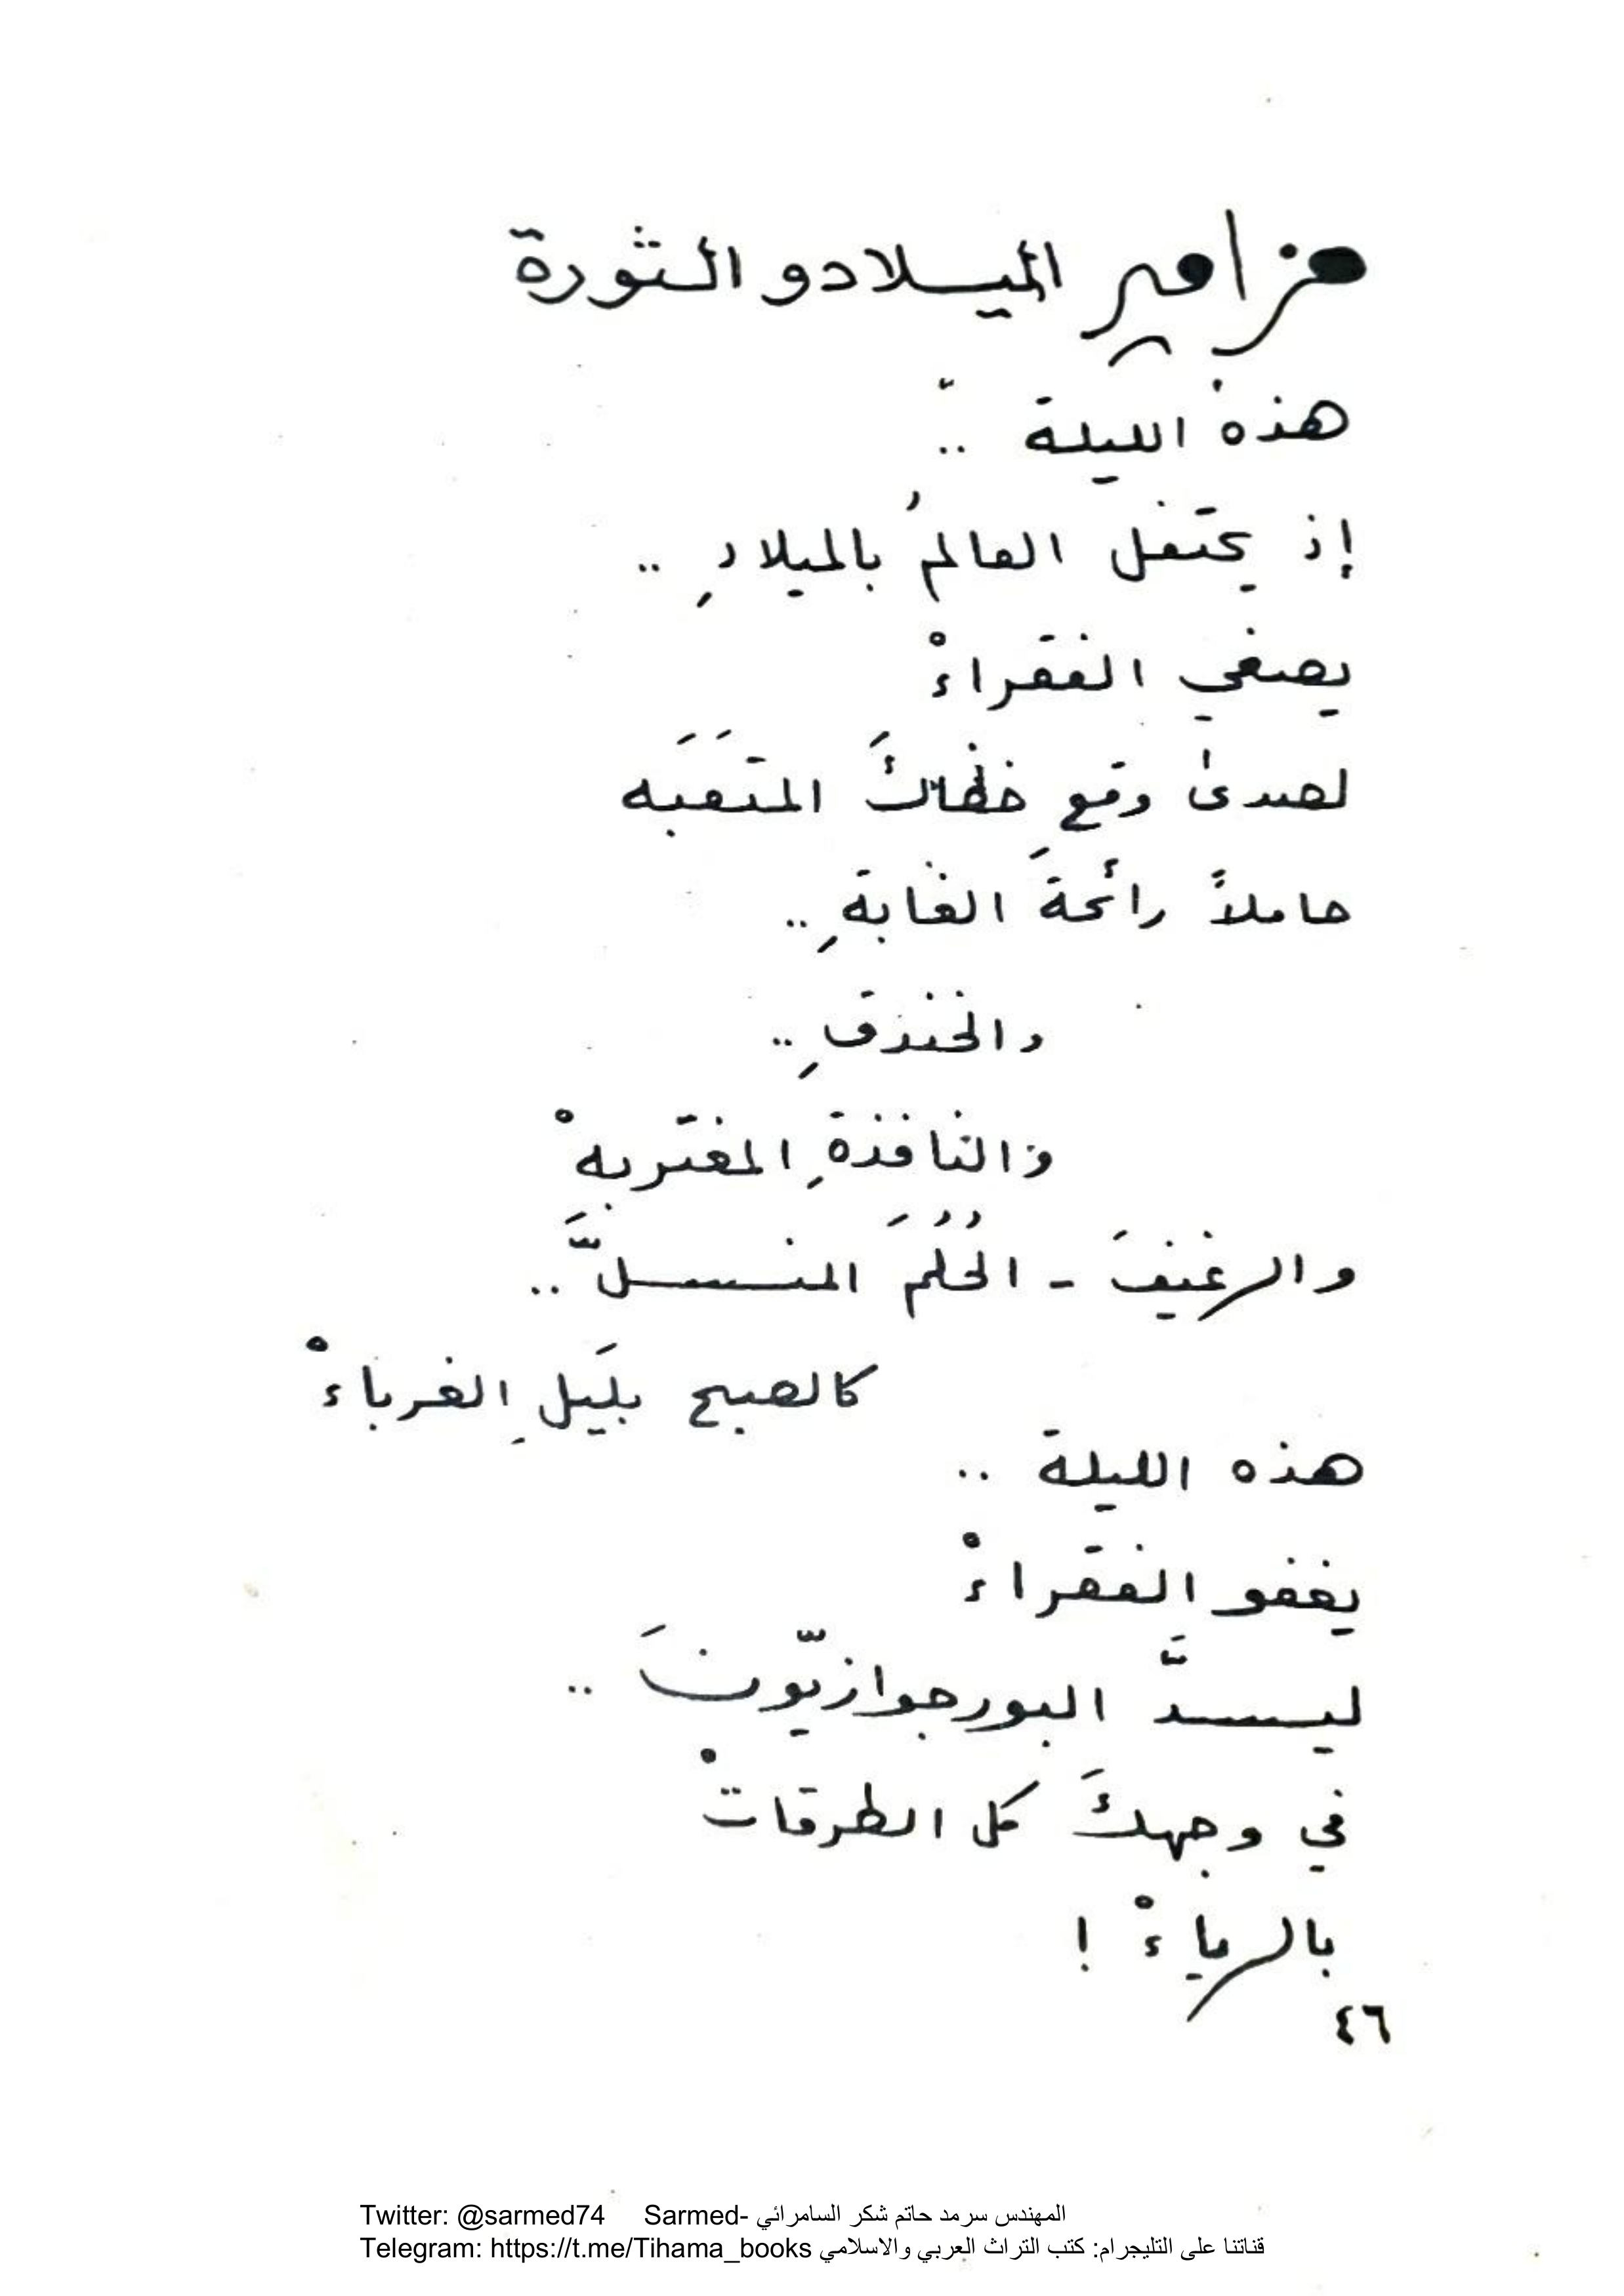 مزامير الميلاد و الثورة
هذه الليلة ..
إذ يحتفل العالمُ بالميلادِ ..
يصغي الفقراءْ
لصدىٰ وقع خطاكَ المتعَبَه
حاملاً رائحةَ الغابةِ ..
والخندقِ ..
والنافذةِ المغتربهْ
والرغيفَ - الحُلُمَ المنسلَّ ..
كالصبح بلَيلِ الغرباءْ
هذه الليلة ..
يغفو الفقراءْ
ليسدَّ البورجوازيّونَ ..
في وجهكَ كل الطرقاتْ
بالرياءْ !
٤٦
Twitter: @sarmed74 Sarmed- المهندس سرمد حاتم شكر السامرائي
Telegram: https://t.me/Tihama_books قناتنا على التليجرام: كتب التراث العربي والاسلامي